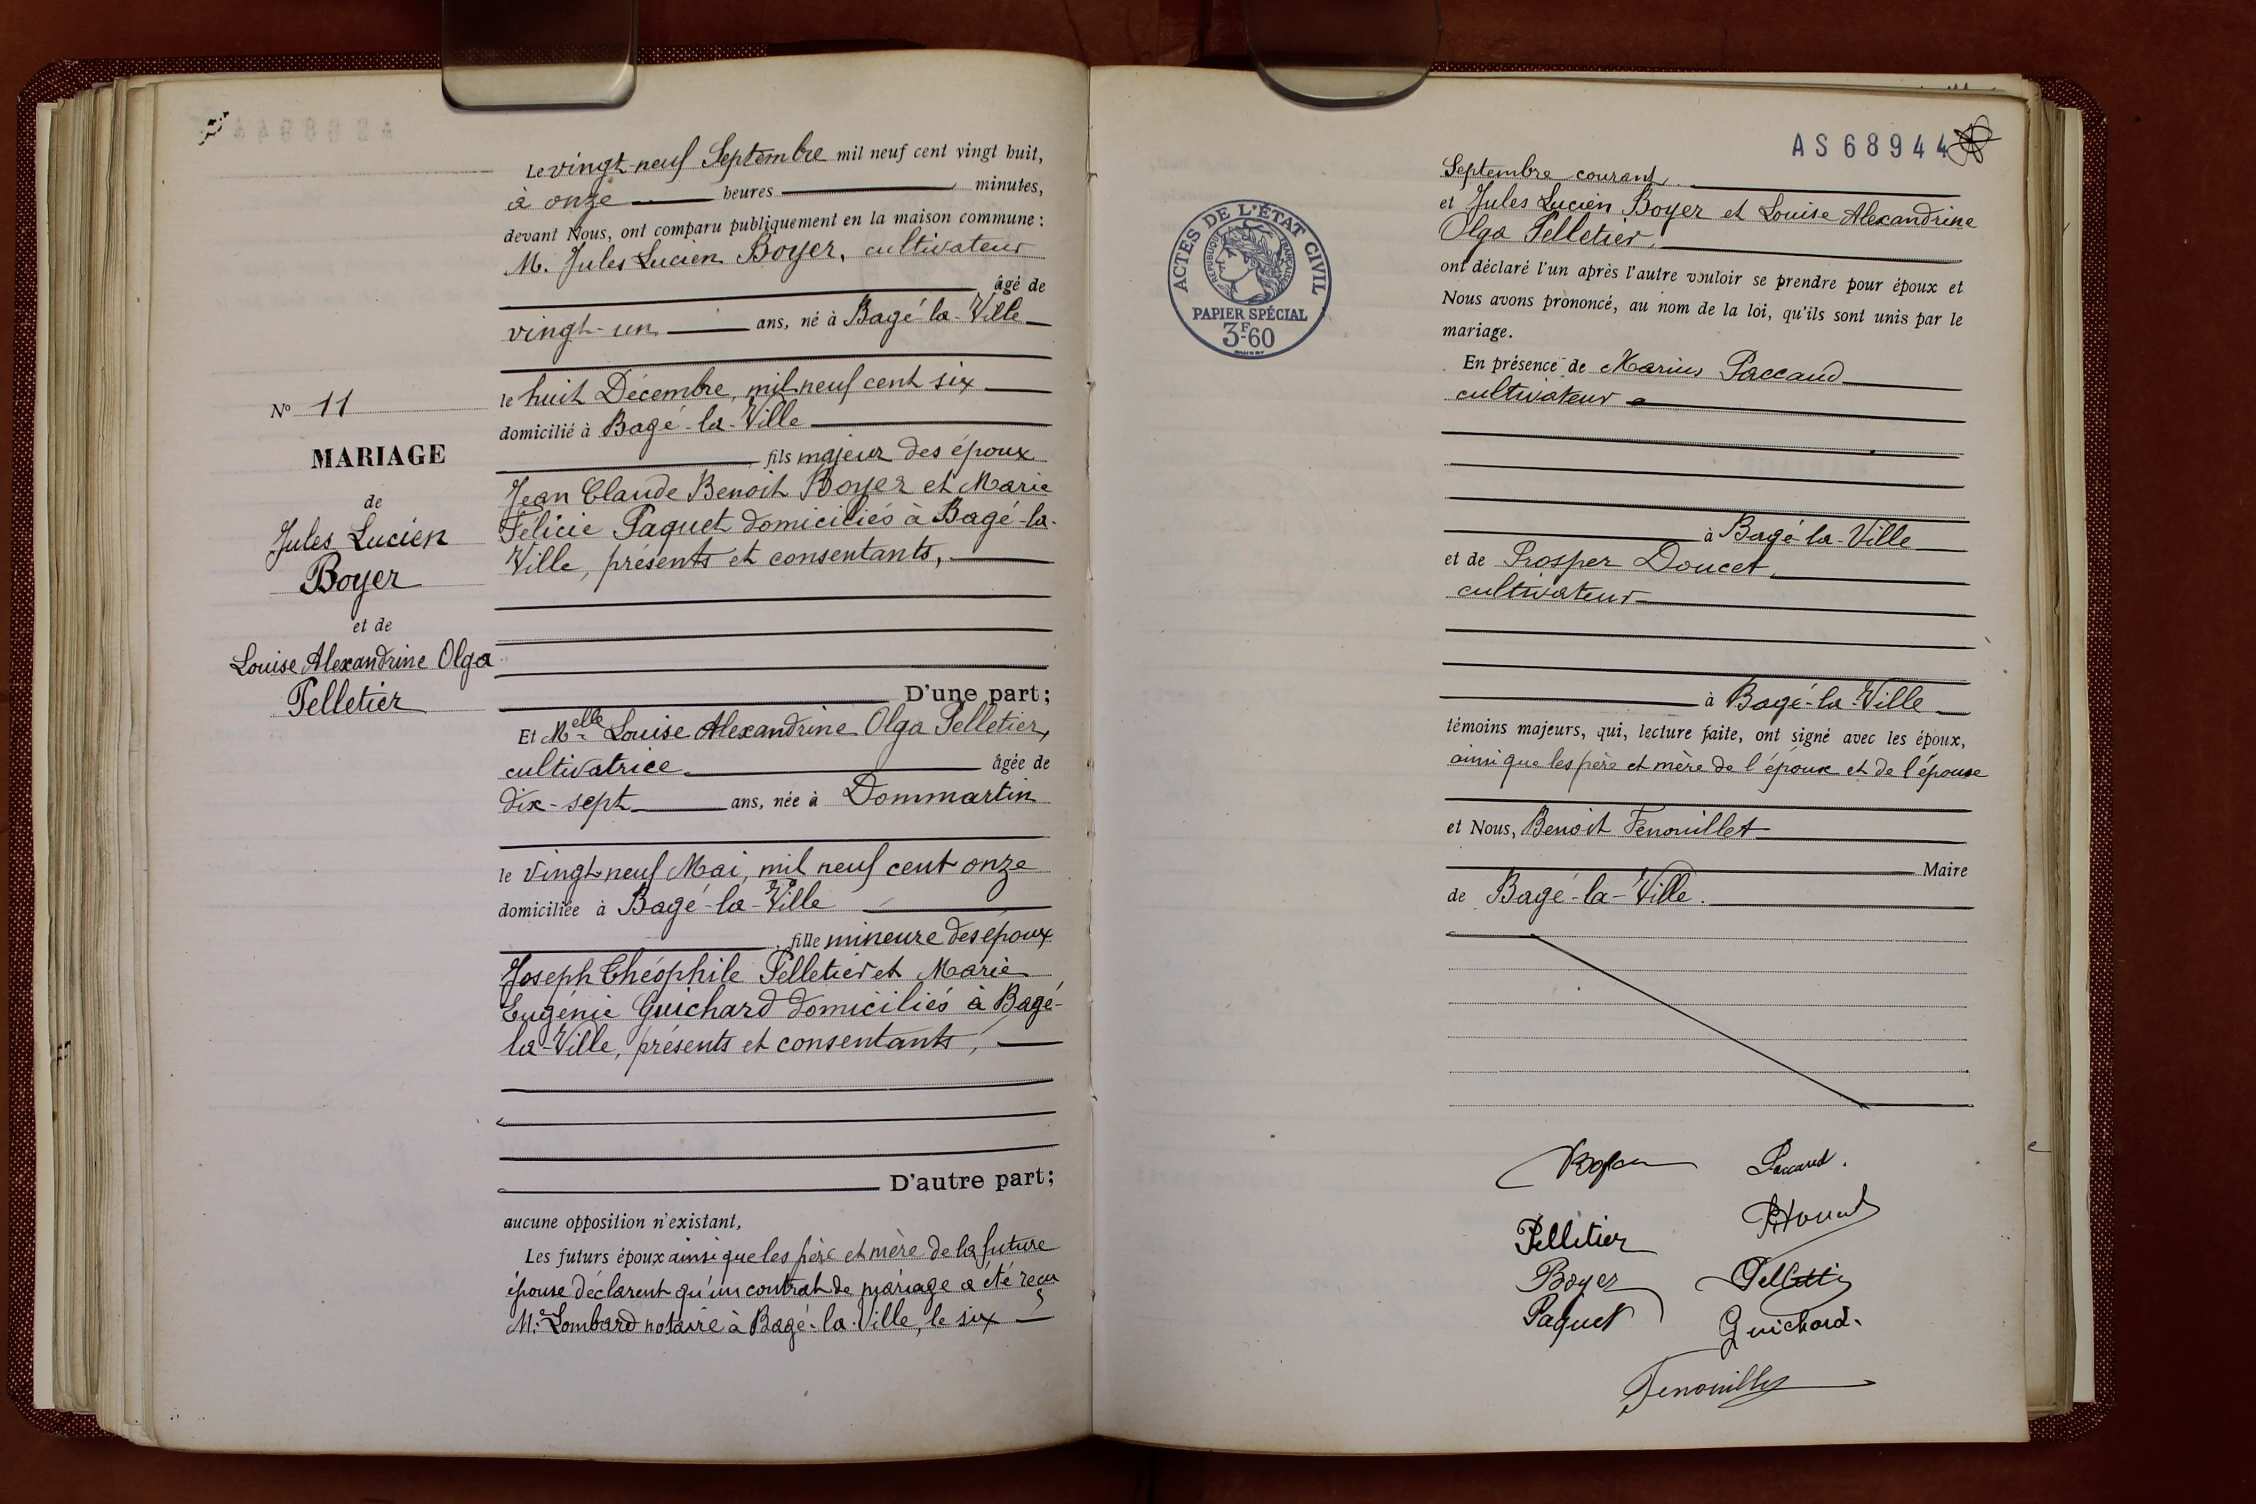 Le vingt-neuf Septembre mil neuf cent vingt huit,
à onze heures minutes,
devant Nous, ont comparu publiquement en la maison commune :
M. Jules Lucien Boyer, cultivateur
âgé de
vingt-un ans, né à Bagé-la-Ville
le huit Décembre, mil neuf cent six
domicilié à Bagé-la-Ville
fils majeur des époux
Jean Claude Benoit Boyer et Marie
Félicie Paquet domiciliés à Bagé-la-
Ville, présents et consentants,
D'une part ;
Et Melle Louise Alexandrine Olga Pelletier,
cultivatrice âgée de
dix-sept ans, née à Dommartin
le vingt-neuf Mai, mil neuf cent onze
domiciliée à Bagé-la-Ville
fille mineure des époux
Joseph Théophile Pelletier et Marie
Eugénie Guichard domiciliés à Bagé-
la-Ville, présents et consentants,
D'autre part ;
aucune opposition n'existant,
Les futurs époux ainsi que les père et mère de la future
épouse déclarent qu'un contrat de mariage a été reçu
Me Lombard notaire à Bagé-la-Ville, le six
No 11
MARIAGE
de
Jules Lucien
Boyer
et de
Louise Alexandrine Olga
Pelletier
AS68944
ACTES DE L'ÉTAT CIVIL
RÉPUBLIQUE FRANÇAISE
PAPIER SPÉCIAL
3F-60
Septembre courant.
et Jules Lucien Boyer et Louise Alexandrine
Olga Pelletier,
ont déclaré l'un après l'autre vouloir se prendre pour époux et
Nous avons prononcé, au nom de la loi, qu'ils sont unis par le
mariage.
En présence de Marius Paccaud
cultivateur
à Bagé-la-Ville
et de Prosper Doucet,
cultivateur
à Bagé-la-Ville
témoins majeurs, qui, lecture faite, ont signé avec les époux,
ainsi que les père et mère de l'époux et de l'épouse
et Nous, Benoit Fenouillet
Maire
de Bagé-la-Ville.
Boyer Paccaud.
Pelletier
Boyer Pelletier
Paquet Guichard.
Fenouillet